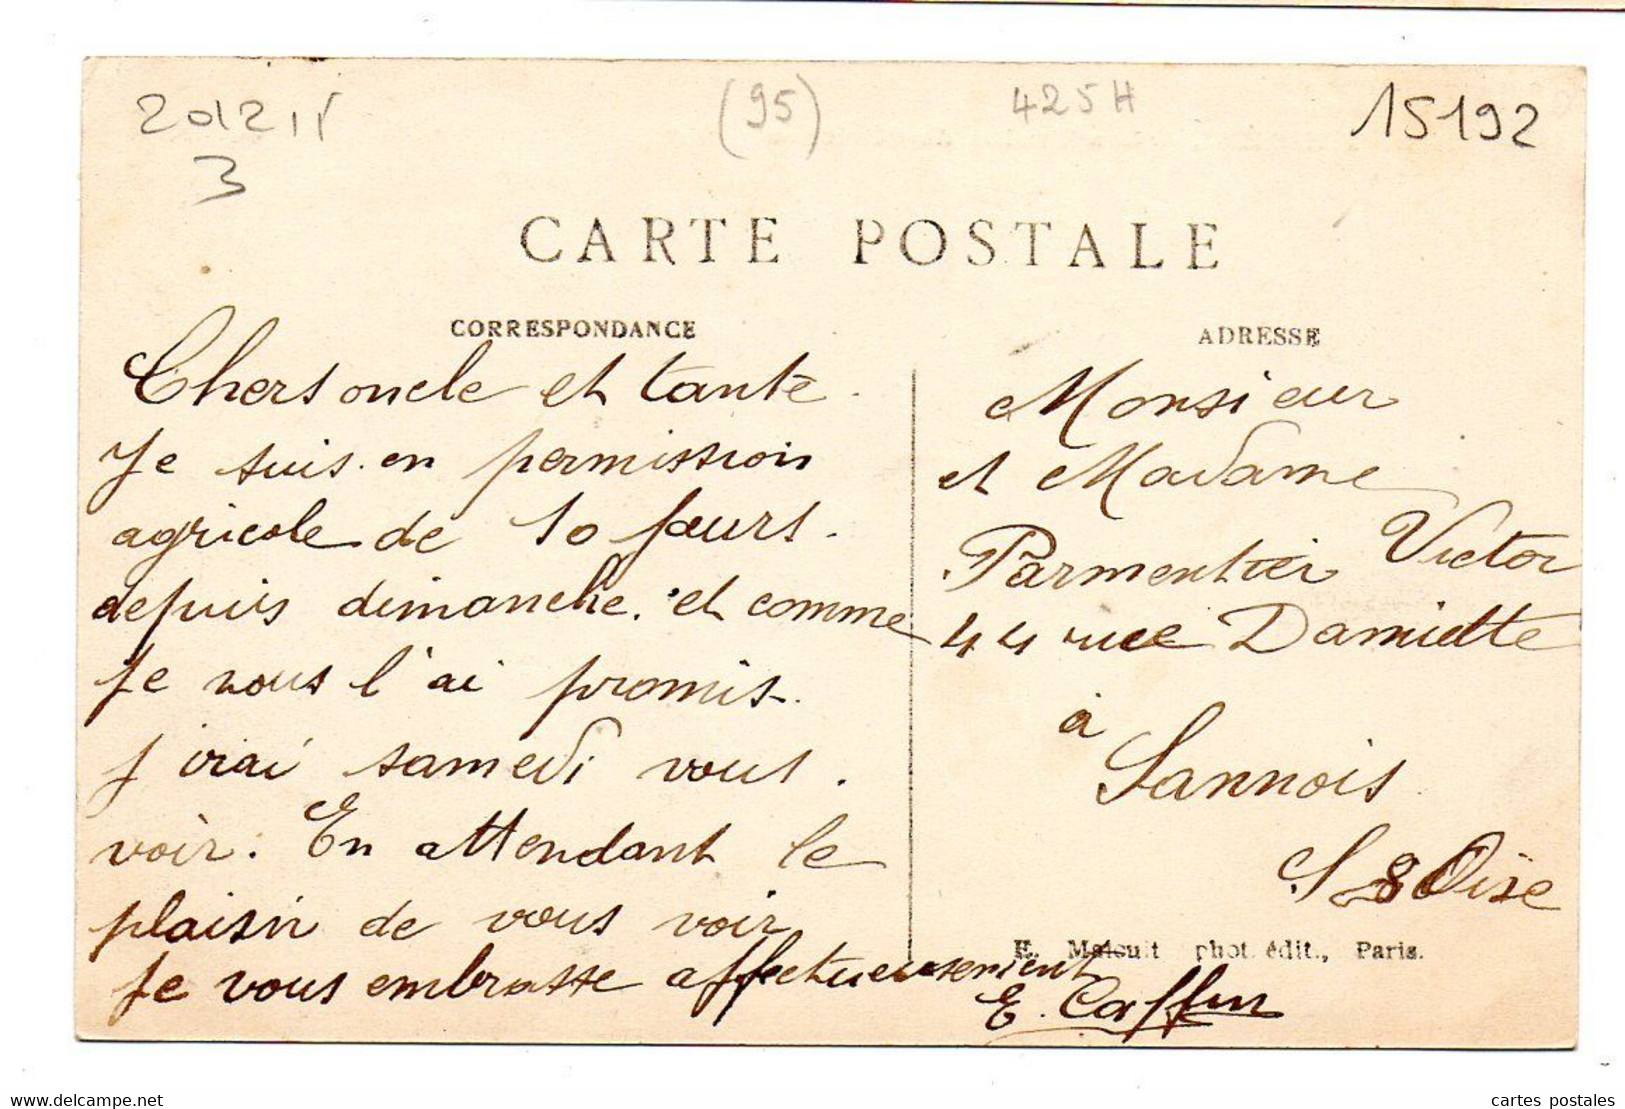 (95)
425H
15192
3
CARTE POSTALE
CORRESPONDANCE
Chers oncle et tante
Je suis en permission
agricole de 10 jours.
depuis dimanche. et comme
je vous l'ai promis.
j irai samedi vous.
voir. En attendant le
plaisir de vous voir
je vous embrasse affectueusement
E. Caffin
ADRESSE
Monsieur
et Madame
Parmentier Victor
44 rue Damiette
à
Sannois
S & Oise
E. Malcuit phot. édit., Paris.
www.delcampe.net
cartes postales